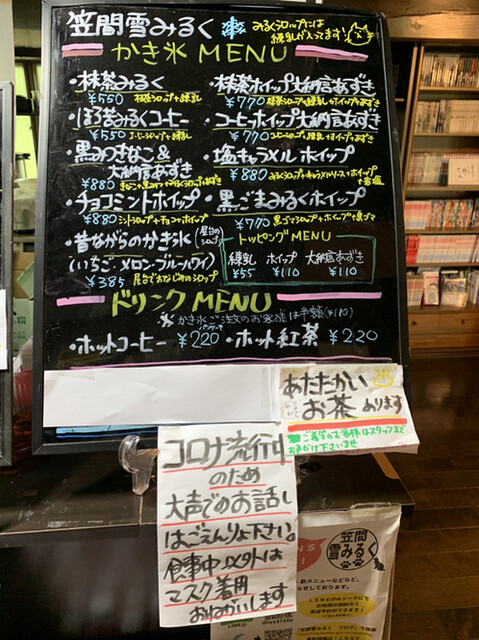 笠間雪みるく
みるくシロップには
練乳が入ってます!
かき氷 MENU
・抹茶みるく
¥550 抹茶シロップ+練乳
・ほろ苦みるくコーヒー
¥550 コーヒーシロップ+練乳
・黒みつきなこ&
大納言あずき
¥880
・チョコミントホイップ
¥880 ミントシロップ+チョコ+ホイップ
・昔ながらのかき氷
屋台のシロップ
(いちご・メロン・ブルーハワイ)
¥385 屋台でおなじみのシロップ
・抹茶ホイップ大納言あずき
¥770 抹茶シロップ+練乳+ホイップ+あずき
・コーヒーホイップ大納言あずき
¥770 コーヒーシロップ+練乳+ホイップ+あずき
・塩キャラメルホイップ
¥880 みるくシロップ+キャラメルソース+ホイップ+岩塩
・黒ごまみるくホイップ
¥770 黒ごまシロップ+ホイップ+黒ごま
トッピングMENU
練乳 ホイップ 大納言あずき
¥55 ¥110 ¥110
ドリンクMENU
※かき氷ご注文のお客様は半額(¥110)
・ホットコーヒー ¥220 ・ホット紅茶 ¥220
あたたかい
お茶あります
ご希望のお客様はスタッフまで
お声がけ下さいませ
コロナ流行中
のため
大声でのお話し
はごえんりょ下さい。
食事中以外は
マスク着用
おねがいします
笠間
雪みるく